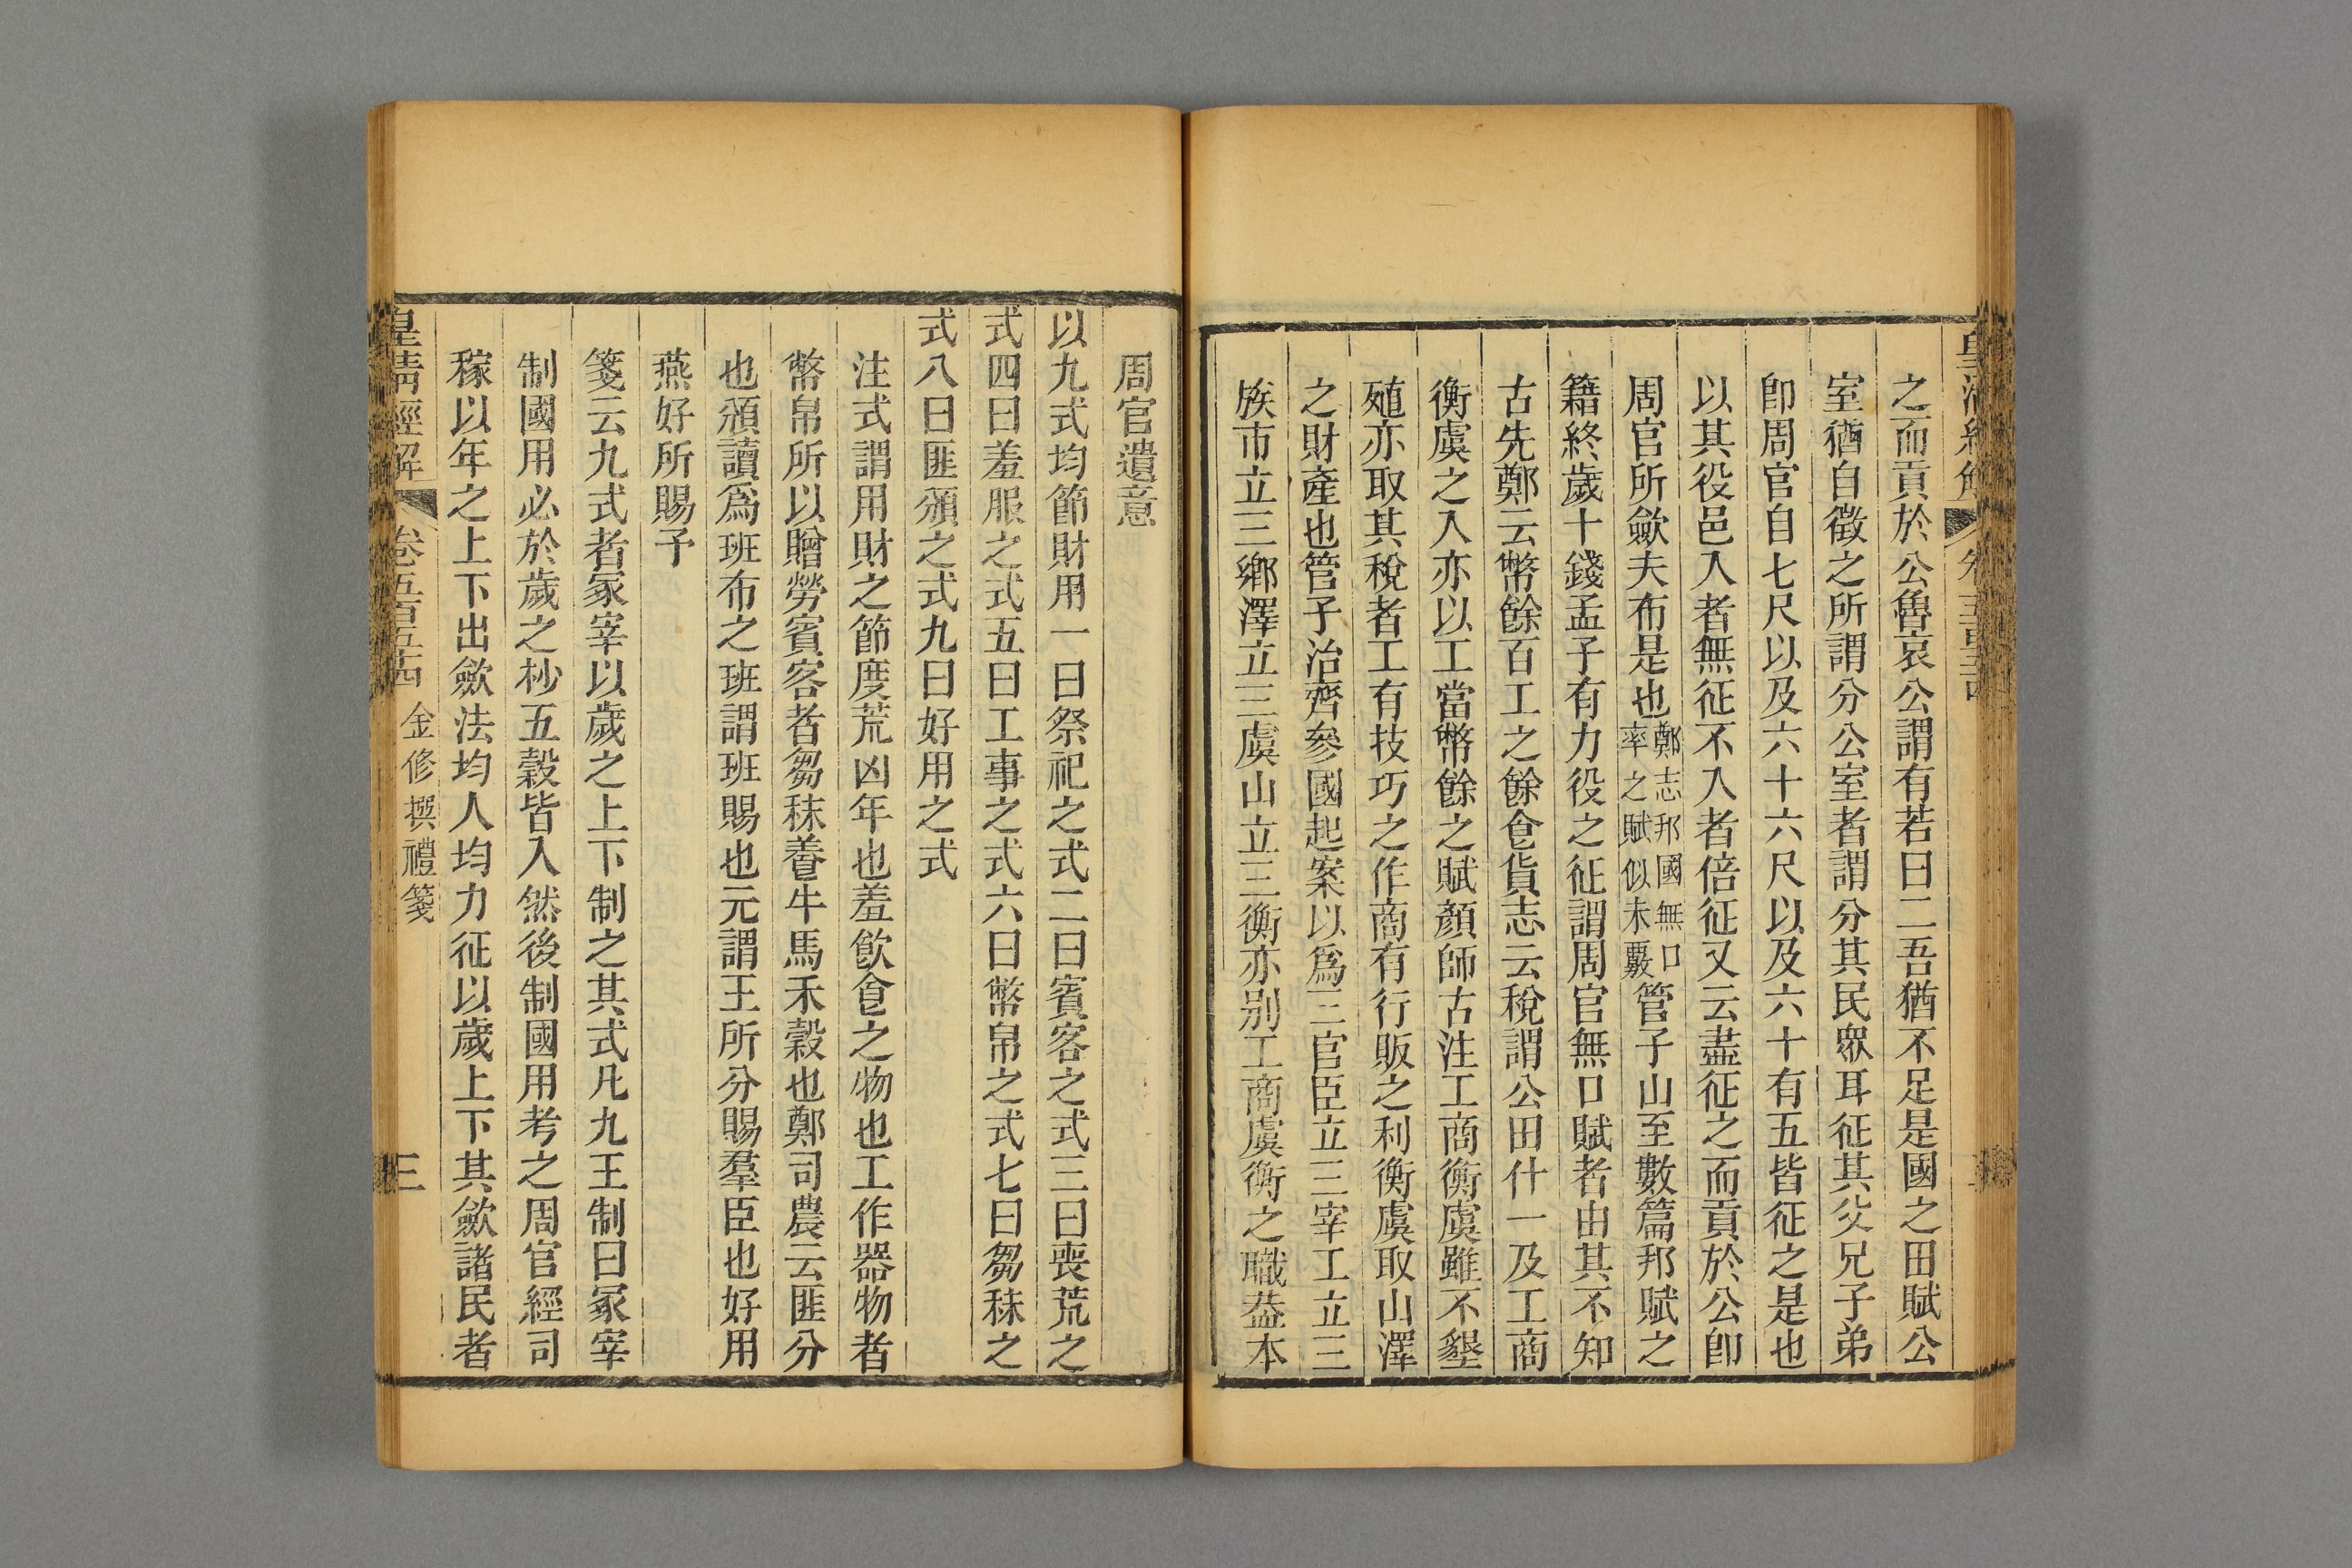 之而貢於公魯哀公謂有若曰二吾猶不足是國之田賦公
室猶自徵之所謂分公室者謂分其民眾耳征其父兄子弟
卽周官自七尺以及六十六尺以及六十有五皆征之是也
以其役邑入者無征不入者倍征又云盡征之而貢於公卽
周官所斂夫布是也鄭志邦國無口率之賦似未覈管子山至數篇邦賦之
籍終歲十錢孟子有力役之征謂周官無口賦者由其不知
古先鄭云幣餘百工之餘食貨志云稅謂公田什一及工商
衡虞之入亦以工當幣餘之賦顏師古注工商衡虞雖不墾
殖亦取其稅者工有技巧之作商有行販之利衡虞取山澤
之財產也管子治齊參國起案以爲三官臣立三宰工立三
族市立三鄉澤立三虞山立三衡亦別工商虞衡之職葢本
周官遺意
以九式均節財用一曰祭祀之式二曰賓客之式三曰喪荒之
式四曰羞服之式五曰工事之式六曰幣帛之式七曰芻秣之
式八曰匪頒之式九曰好用之式
注式謂用財之節度荒凶年也羞飲食之物也工作器物者
幣帛所以贈勞賓客者芻秣養牛馬禾穀也鄭司農云匪分
也頒讀爲班布之班謂班賜也元謂王所分賜羣臣也好用
燕好所賜予
箋云九式者冢宰以歲之上下制之其式凡九王制曰冢宰
制國用必於歲之杪五穀皆入然後制國用考之周官經司
稼以年之上下出斂法均人均力征以歲上下其斂諸民者
皇清經解 卷五百五十四 金修撰禮箋 三